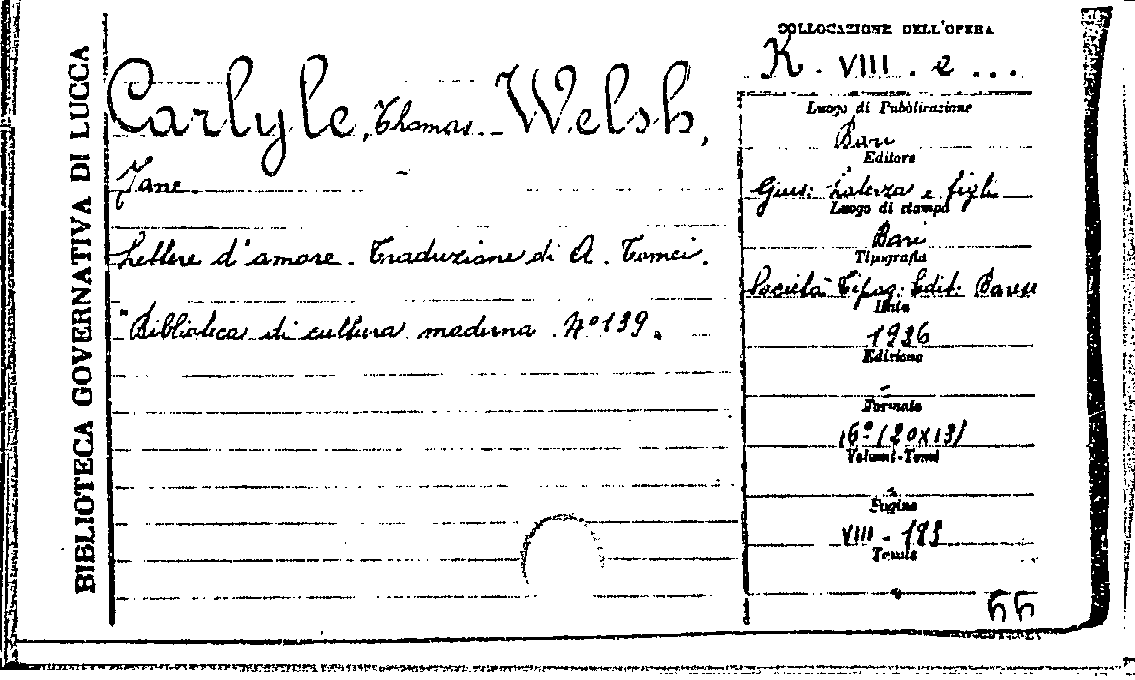 BIBLIOTECA GOVERNATIVA DI LUCCA
Carlyle, Thomas. - Welsh,
Jane.
Lettere d'amore. Traduzione di A. Tomei.
"Biblioteca di cultura moderna. N° 139.
COLLOCAZIONE DELL'OPERA
K. VIII. e ...
Luogo di Pubblicazione
Bari
Editore
Gius: Laterza e figli
Luogo di stampa
Bari
Tipografia
Società Tipog: Edit: Barese
Data
1936
Edizione
-
Formato
16° (20x13)
Volumi-Tomi
-
Pagine
VIII - 183
Tavole
-